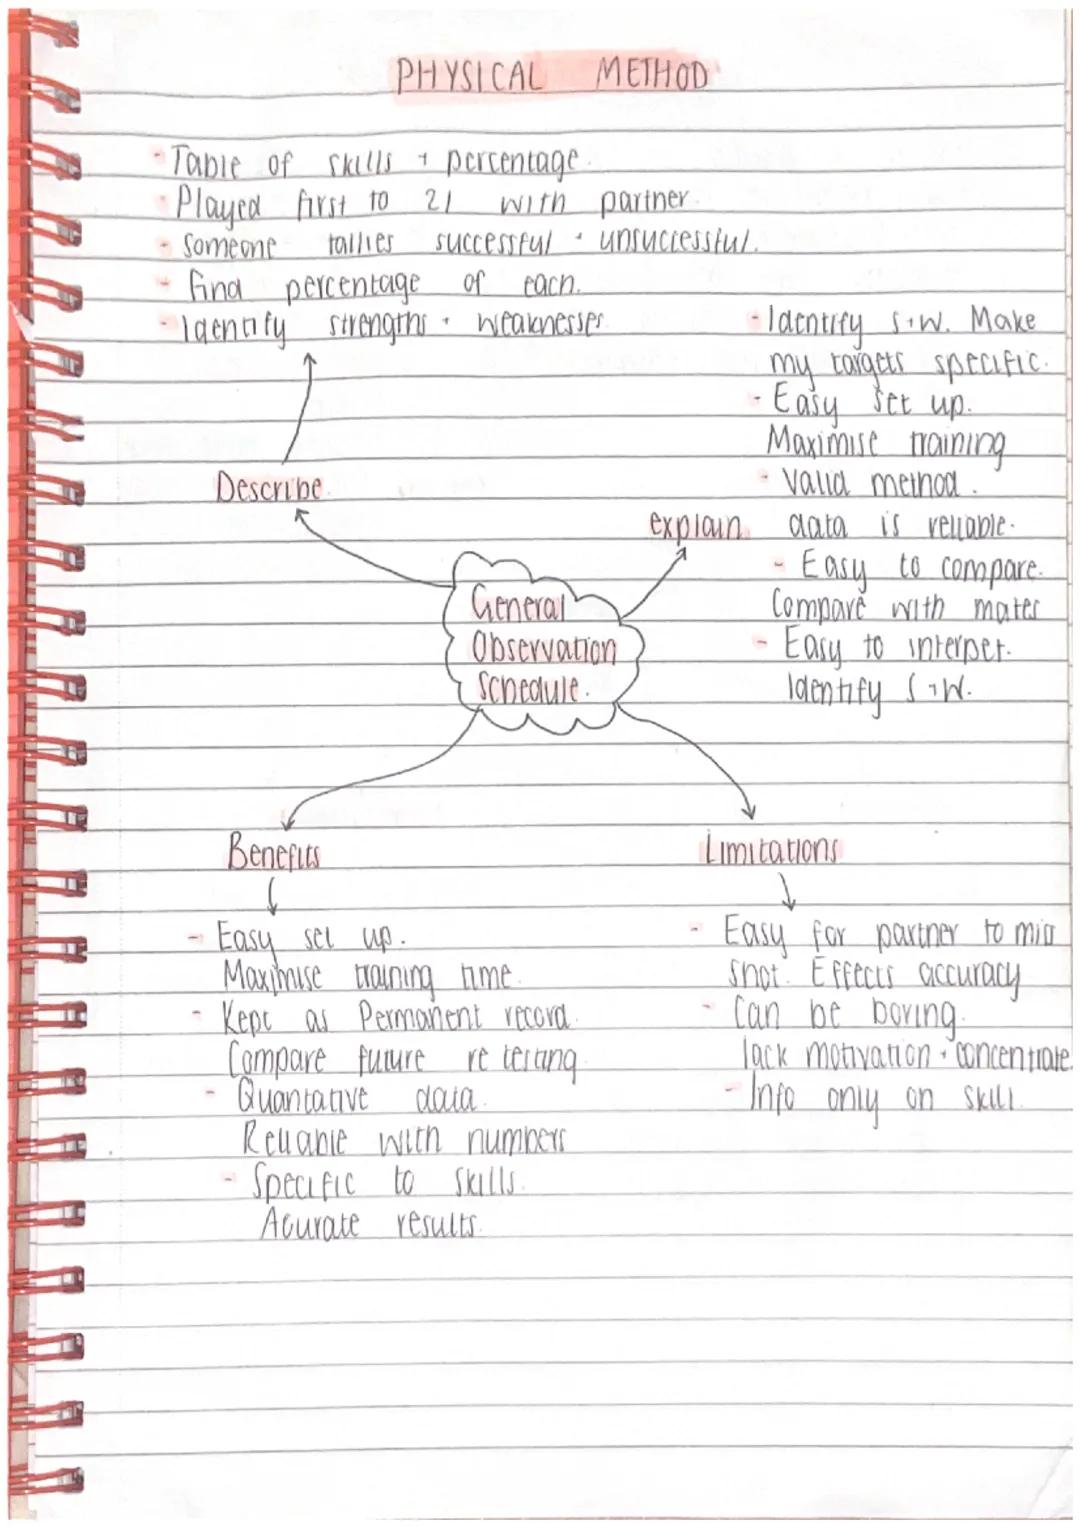 PHYSICAL METHOD
- Table of skills + percentage.
- Played first to 21 with partner.
- Someone tallies successful + unsuccessful.
- find percentage of each.
- Identify strengths + weaknesses.
Describe.
- Identify S+W. Make
my targets specific.
- Easy set up.
Maximise training
- Valid method.
data is reliable.
- Easy to compare.
Compare with mates
- Easy to interpet.
Identify S+W.
explain.
General
Observation
Schedule.
Benefits
- Easy set up.
Maximise training time.
- Kept as Permanent record.
Compare future re testing
- Quantative data.
Reliable with numbers
- Specific to skills.
Acurate results.
Limitations
- Easy for partner to miss
shot. Effects accuracy
- Can be boring.
lack motivation + concentrate.
- Info only on skill.